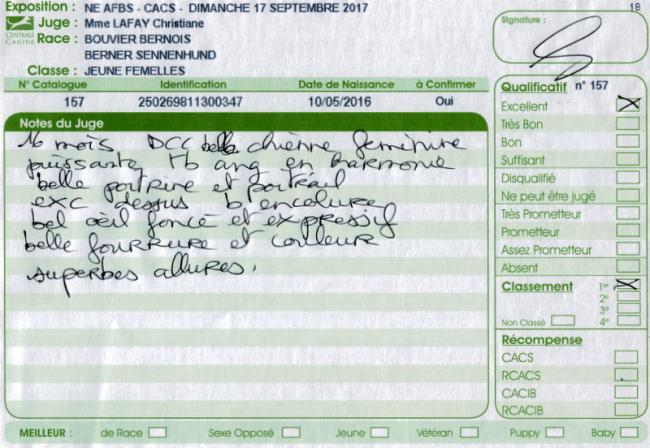 Exposition : NE AFBS - CACS - DIMANCHE 17 SEPTEMBRE 2017
18
CENTRALE CANINE
Juge : Mme LAFAY Christiane
Race : BOUVIER BERNOIS
BERNER SENNENHUND
Classe : JEUNE FEMELLES
Signature :
N° Catalogue Identification Date de Naissance à Confirmer
157 250269811300347 10/05/2016 Oui
Notes du Juge
16 mois DCC belle chienne feminine
puissante, tb ang en harmonie
belle poitrine et poitrail
exc dessus b encolure
bel œil foncé et expressif
belle fourrure et couleur
superbes allures.
Qualificatif n° 157
Excellent
Très Bon
Bon
Suffisant
Disqualifié
Ne peut être jugé
Très Prometteur
Prometteur
Assez Prometteur
Absent
Classement 1er
2e
3e
Non Classé 4e
Récompense
CACS
RCACS
CACIB
RCACIB
MEILLEUR : de Race Sexe Opposé Jeune Vétéran Puppy Baby